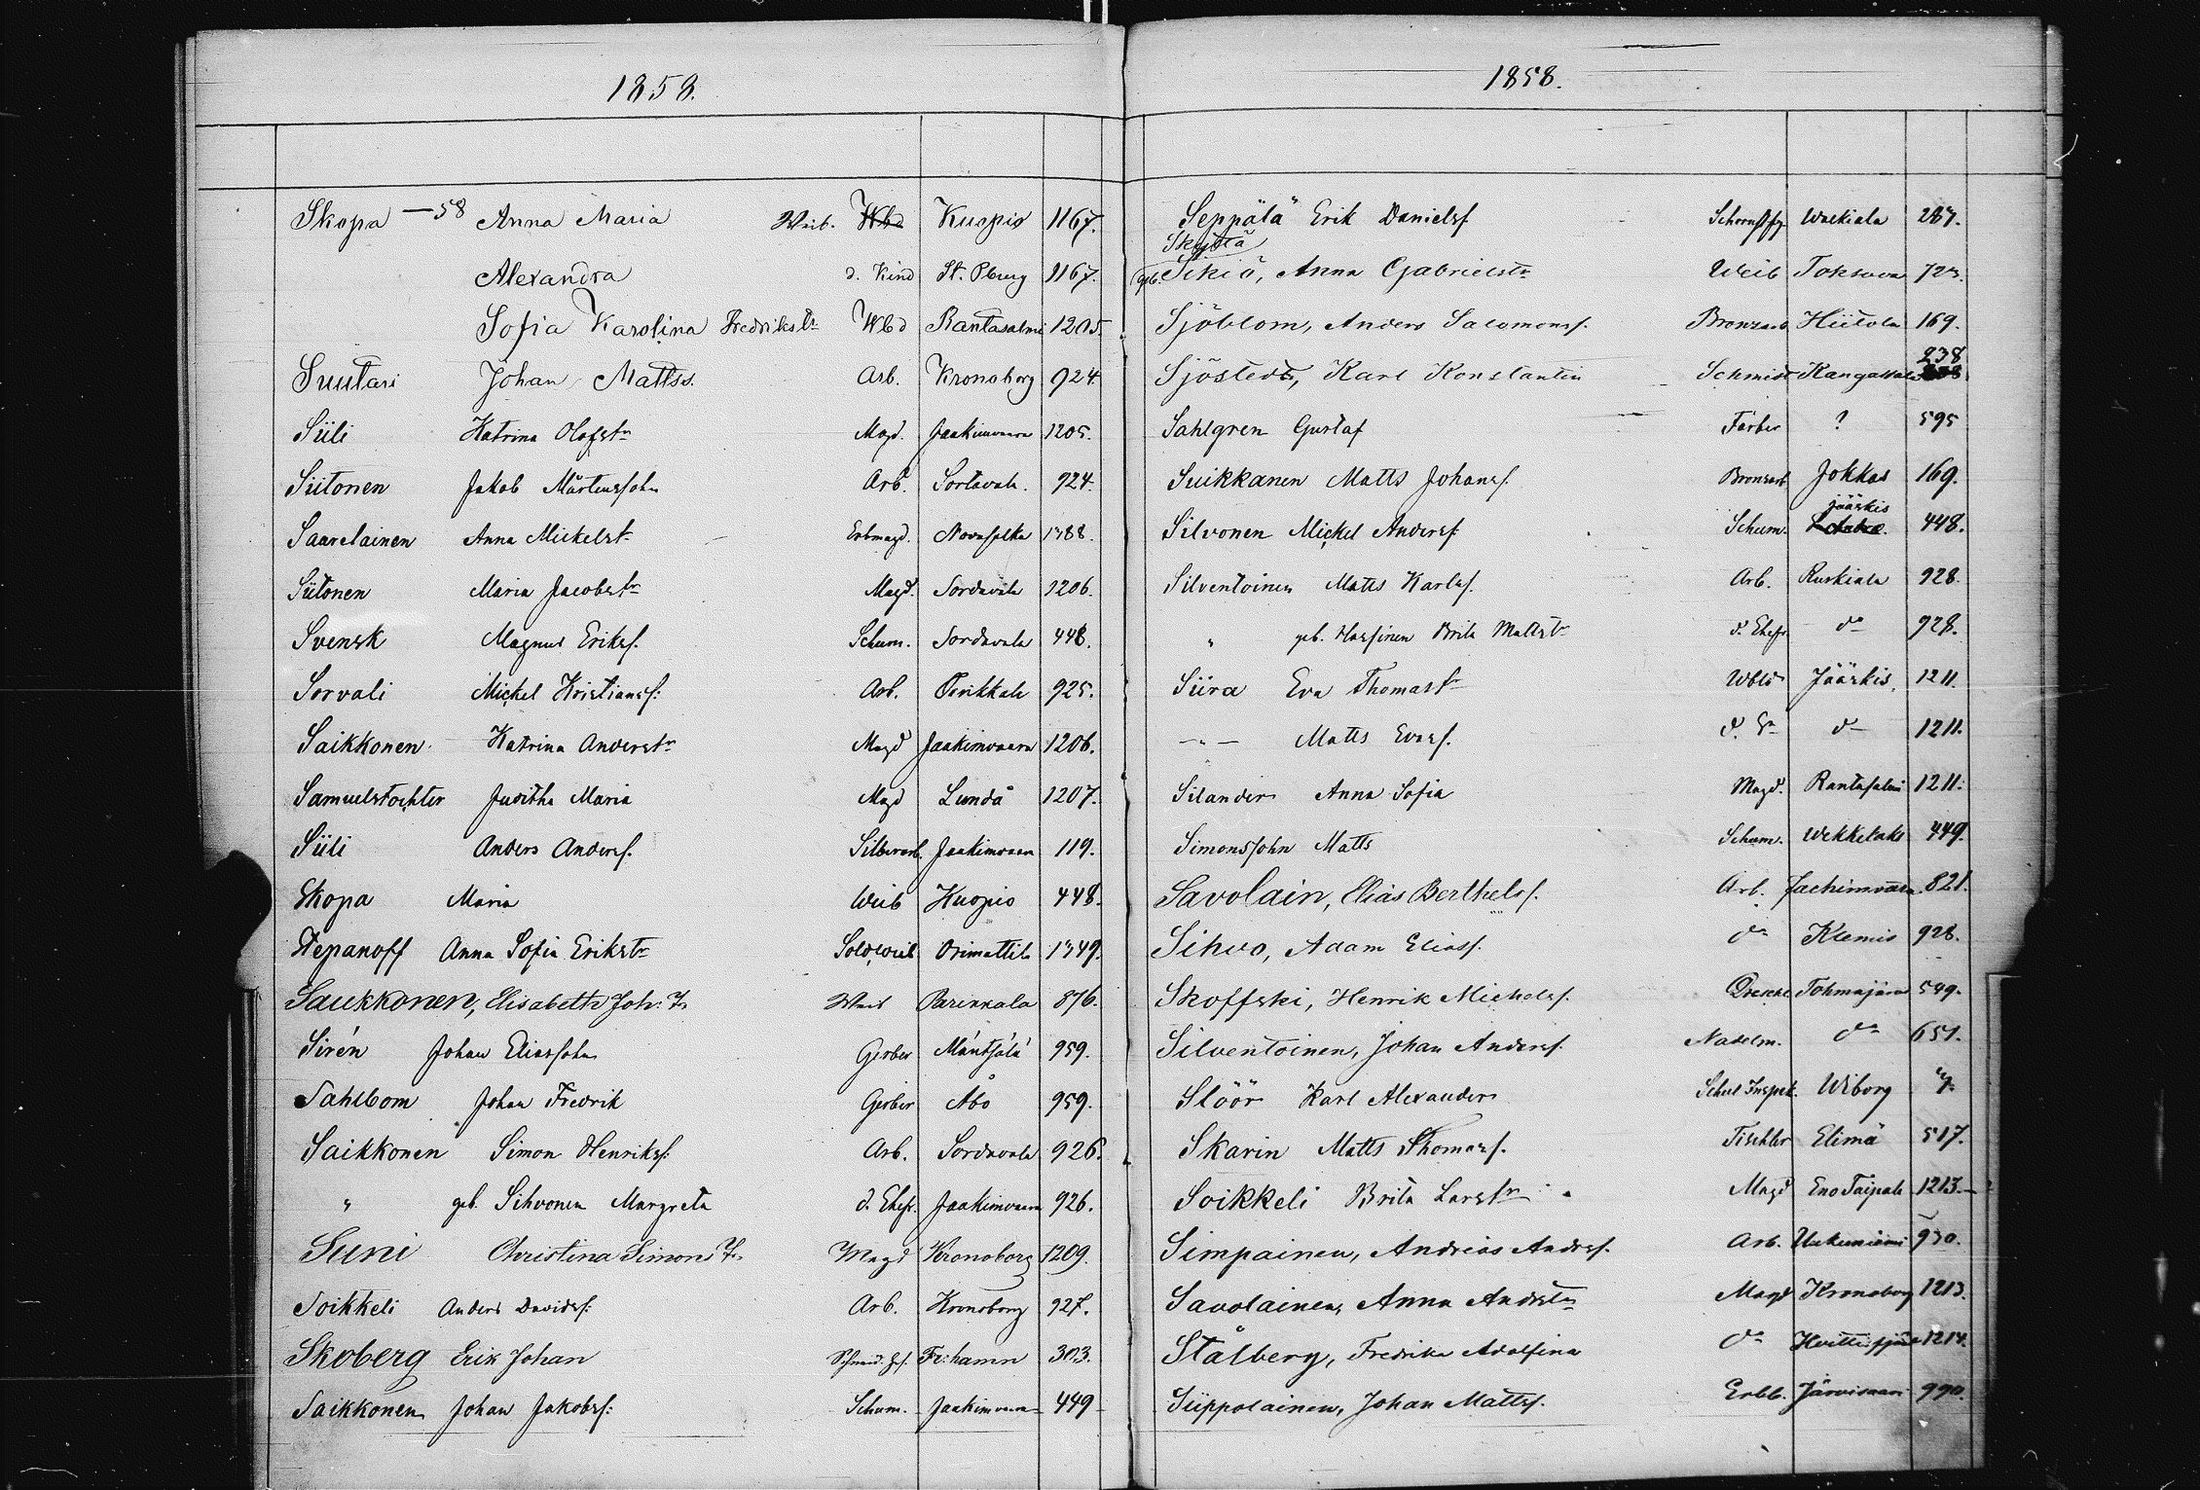 1858.
Skopa —58 Anna Maria Weib. Wbd Kuopio 1167.
Alexandra d. Kind St. Pburg 1167.
Sofia Karolina Fredrikstr Wbd Rantasalmi 1205.
Suutari Johan Mattss. Arb. Kronoborg 924.
Siili Katrina Olofstr Magd. Jaakimvaara 1205.
Siitonen Jakob Mårtenssohn Arb. Sortavala. 924.
Saarelainen Anna Mickelstr Erbmagd. 1388.
Siitonen Maria Jacobstr Magd. Sordavala 1206.
Svensk Magnus Eriksf. Schum. Sordavala 448.
Sorvali Mickel Kristiansf: Arb. Pirikkala 925.
Saikkonen Katrina Anderstr Magd Jaakimvaara 1206.
Samuelstochter Juditha Maria Magd Lundå 1207.
Siili Anders Andersf. Silberarb. Jaakimvaara 119.
Skopa Maria Weib Kuopio 448.
Stepanoff Anna Sofia Erikstr Sold,weib Orimattila 1349.
Saukkonen, Elisabetha Joh. Tr Weib Parikkala 876.
Sirén Johan Eliassohn Gerber Mäntsälä 959.
Sahlbom Johan Fredrik Gerber Åbo 959.
Saikkonen Simon Henriksf: Arb. Sordavala 926.
" geb. Sihvonen Margreta d. Ehefr. Jaakimvaara 926.
Suni Christina Simons Tr Magd Kronoborg 1209.
Soikkeli Anders Davidsf: Arb. Kronoborg 927.
Skoberg Erik Johan Schneid. Ges. Fr:hamn 303.
Saikkonen Johan Jakobsf: Schum. Jaakimvaara 449
1858.
Seppälä Erik Danielsf Schornstfg Walkiala 267.
Skyttä
geb. Sikiö, Anna Gabrielstr Weib Toksova 723.
Sjöblom, Anders Salomonsf. Bronzarb Hiitola 169.
238
Sjöstedt, Karl Konstantin Schmidt Kangassala
Sahlgren Gustaf Färber ? 595
Suikkanen Matts Johansf. Bronzarb Jokkas 169.
Jääskis
Silvonen Mickel Andersf Schum. 448.
Silventoinen Matts Karlsf. Arb. Ruskiala 928.
" geb. Hassinen Brita Mattstr d. Ehefr. do 928.
Siira Eva Thomastr Wbld Jääskis, 1211.
—"— Matts Evasf. d. Sn do 1211.
Silander Anna Sofia Magd. Rantasalmi 1211.
Simonssohn Matts Schum. Wekkelaks 449.
Savolain, Elias Berthelsf. Arb. Jachimvaara. 821.
Sihvo, Adam Eliasf. do Klemis 928.
Skoffski, Henrik Michelsf. Drechsl Tohmajärvi 549.
Silventoinen, Johan Andersf. Nadelm. do 651.
Slöör Karl Alexander Schul Inspek. Wiborg 4.
Skarin Matts Thomasf. Tischler Elimä 517.
Soikkeli Brita Larstr Magd Eno Taipale 1213.
Simpainen, Andreas Andersf. Arb. Uukuniemi 930.
Savolainen, Anna Anderstr Magd Kronoborg 1213.
Stålberg, Fredrika Adolfina do Hvittisfjärd 1214.
Siippolainen, Johan Mattsf. Erbb. Järvisaari 990.